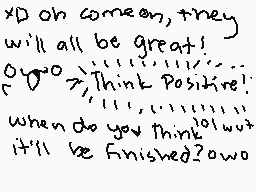 xD oh comeon, they
will all be great!
Think Positive!
when do you think lol wut
it'll be finished? owo